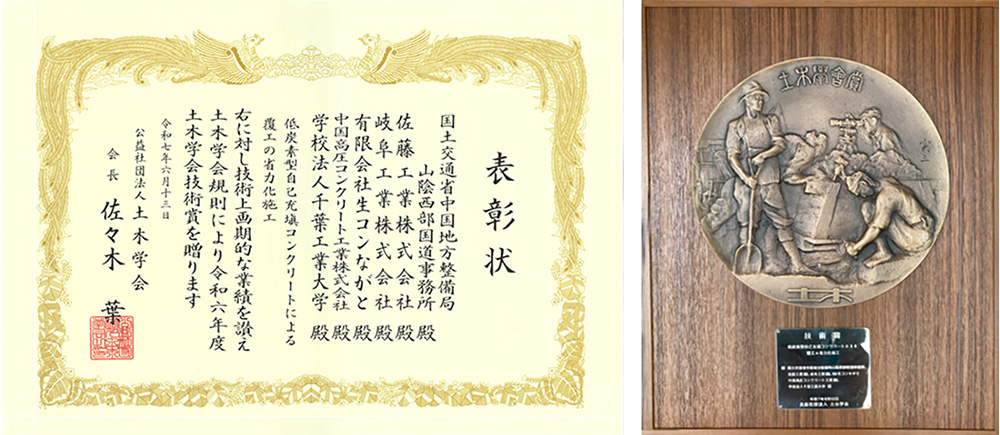 表彰状
国土交通省中国地方整備局
山陰西部国道事務所 殿
佐藤工業株式会社 殿
岐阜工業株式会社 殿
有限会社生コンながと 殿
中国高圧コンクリート工業株式会社 殿
学校法人千葉工業大学 殿
低炭素型自己充填コンクリートによる
覆工の省力化施工
右に対し技術上画期的な業績を讃え
土木学会規則により令和六年度
土木学会技術賞を贈ります
令和七年六月十三日
公益社団法人土木学会
会長 佐々木 葉
土木學會賞
土木
技術賞
低炭素型自己充填コンクリートによる
覆工の省力化施工
公益社団法人 土木学会